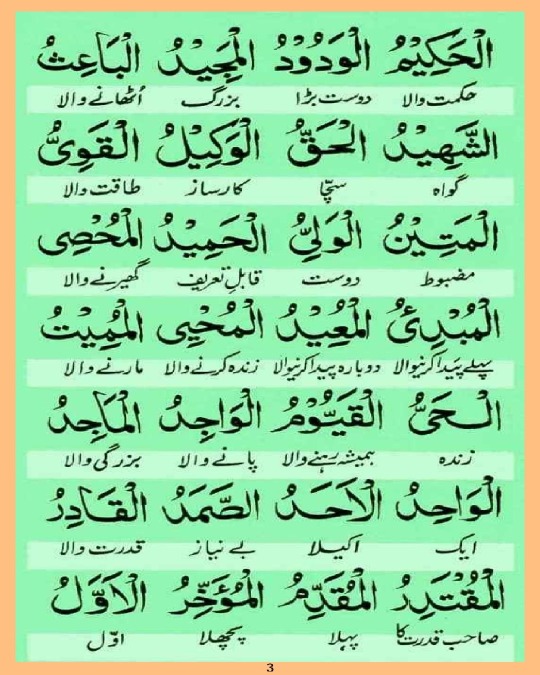 الْحَكِيْمُ الْوَدُوْدُ الْمَجِيْدُ الْبَاعِثُ
حکمت والا دوست بڑا بزرگ اُٹھانے والا
الشَّهِيْدُ الْحَقُّ الْوَكِيْلُ الْقَوِىُّ
گواہ سچّا کارساز طاقت والا
الْمَتِيْنُ الْوَلِىُّ الْحَمِيْدُ الْمُحْصِى
مضبوط دوست قابلِ تعریف گھیرنے والا
الْمُبْدِئُ الْمُعِيْدُ الْمُحْيِى الْمُمِيْتُ
پہلے پیدا کرنیوالا دوبارہ پیدا کرنیوالا زندہ کرنے والا مارنے والا
الْحَىُّ الْقَيُّوْمُ الْوَاجِدُ الْمَاجِدُ
زندہ ہمیشہ رہنے والا پانے والا بزرگی والا
الْوَاحِدُ الْاَحَدُ الصَّمَدُ الْقَادِرُ
ایک اکیلا بے نیاز قدرت والا
الْمُقْتَدِرُ الْمُقَدِّمُ الْمُؤَخِّرُ الْاَوَّلُ
صاحب قدرت کا پہلا پچھلا اوّل
3